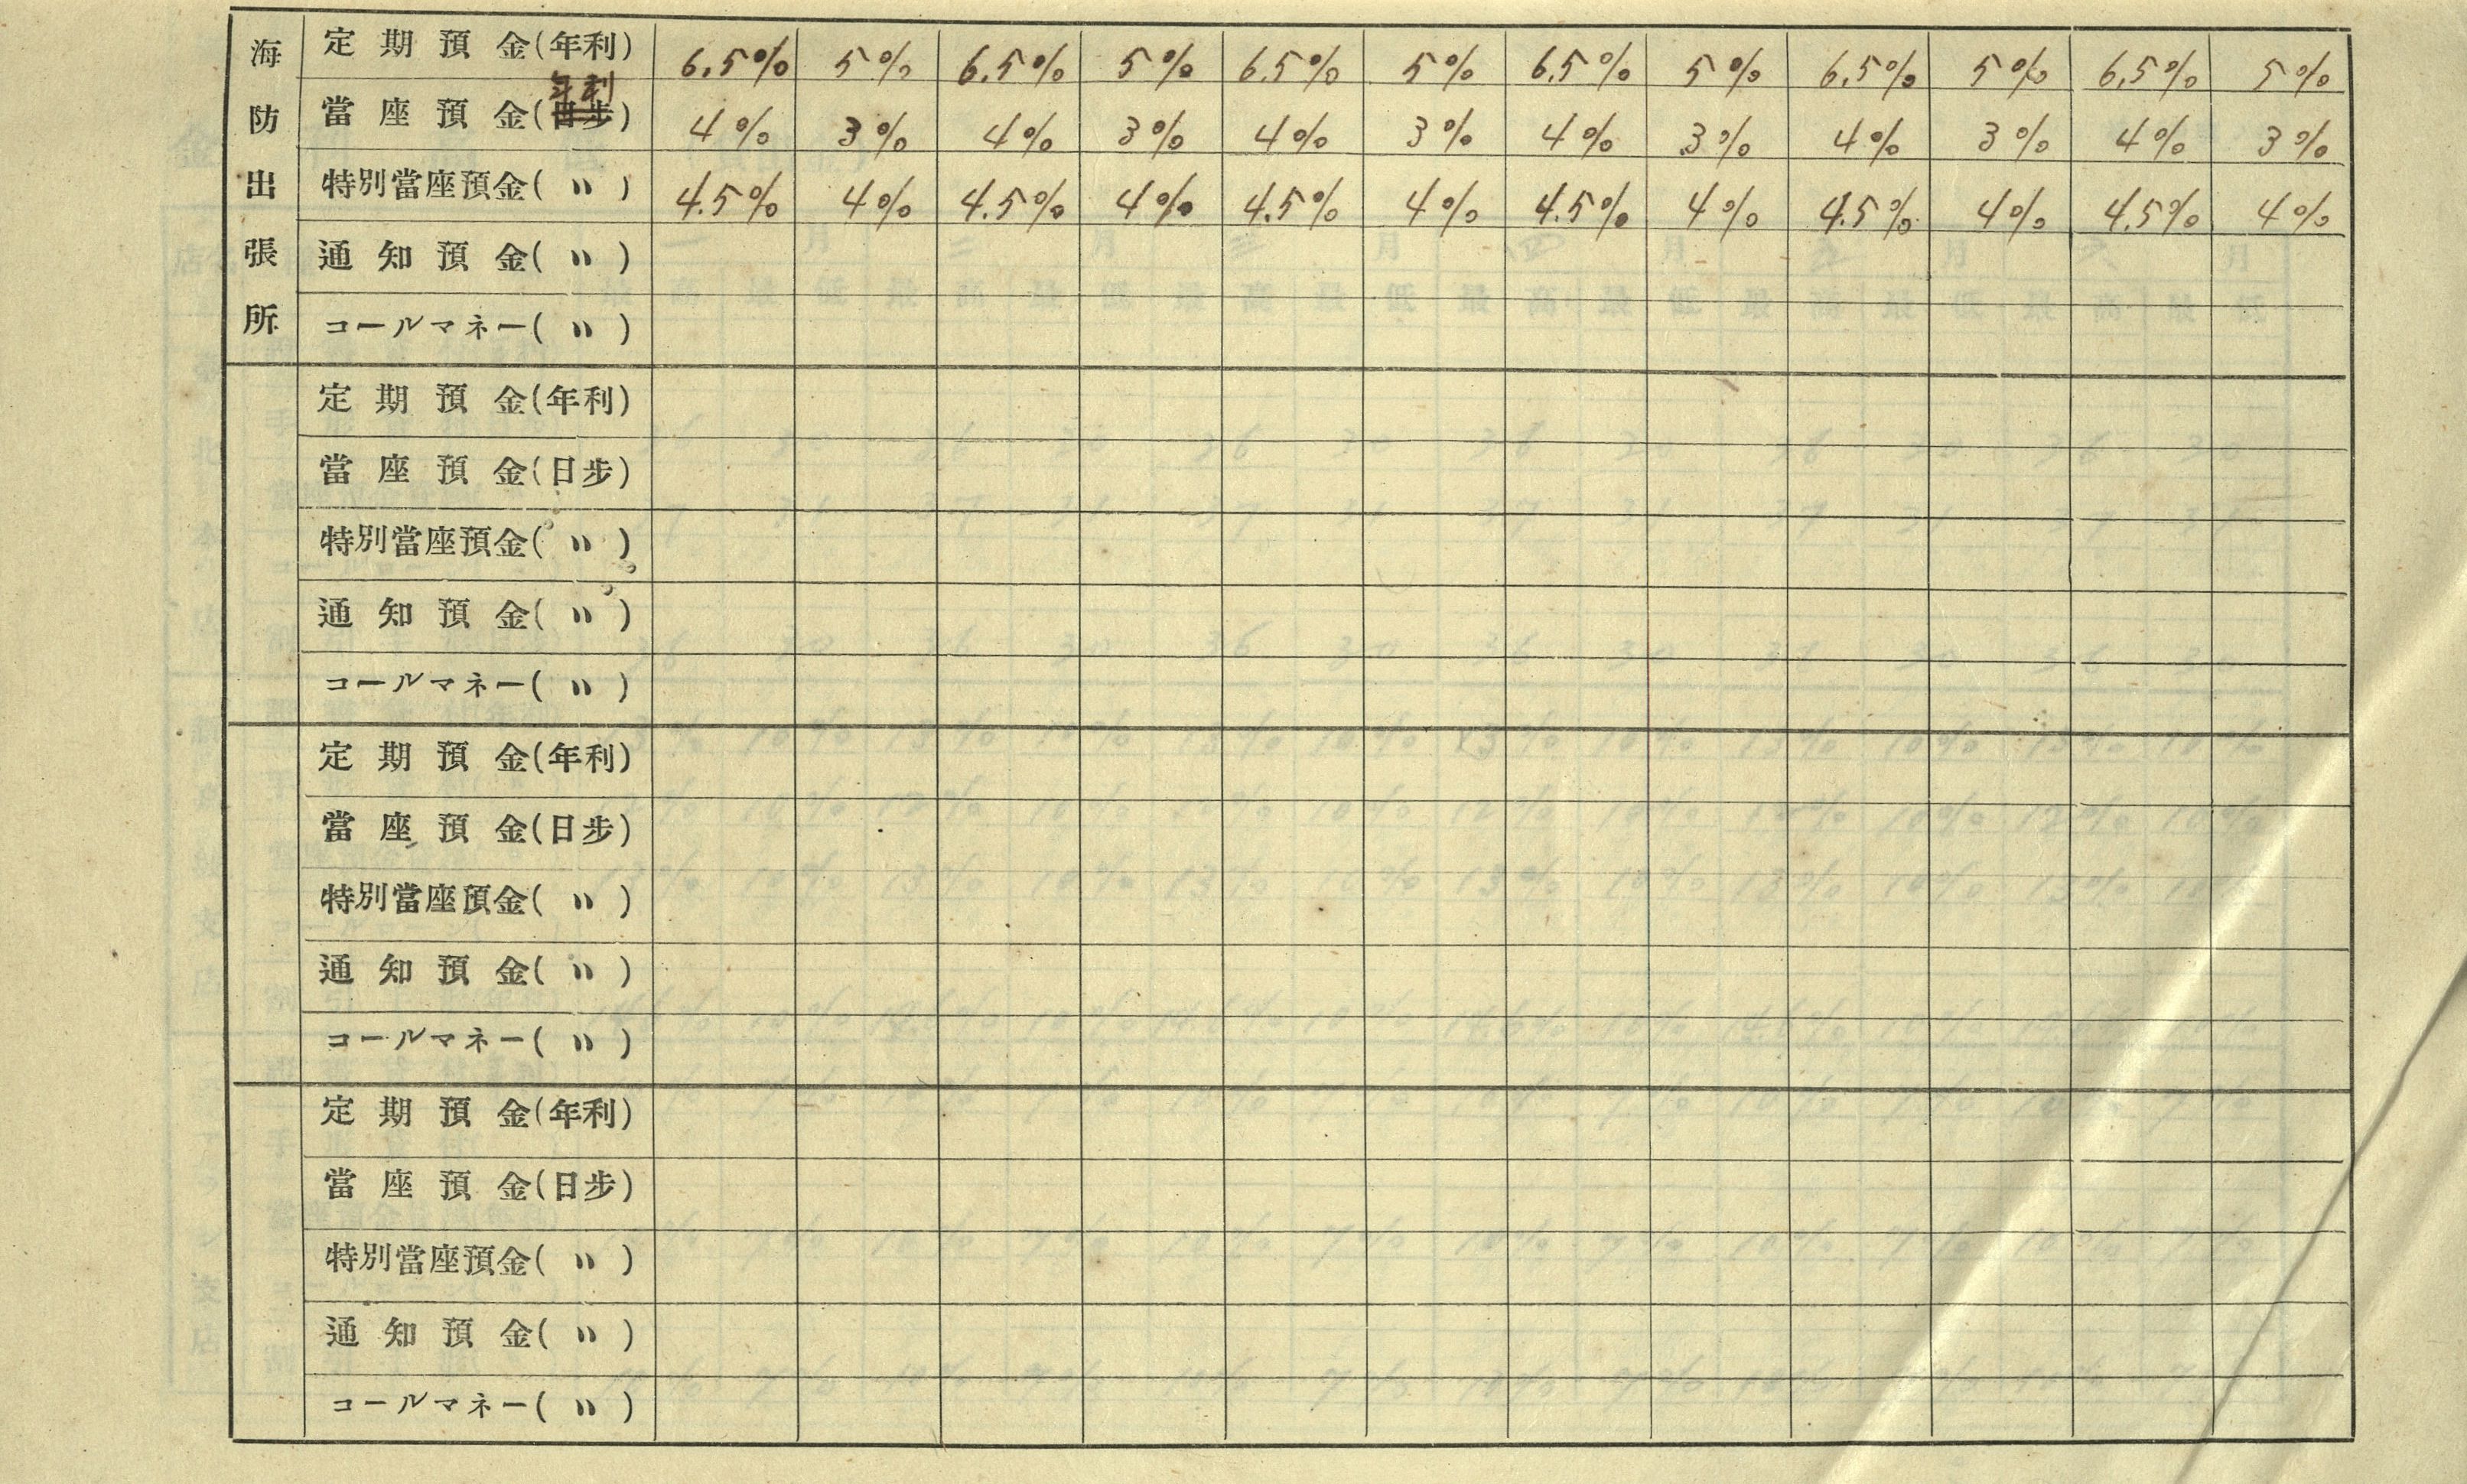 海防出張所
定期預金(年利) 6.5% 5% 6.5% 5% 6.5% 5% 6.5% 5% 6.5% 5% 6.5% 5%
年利
當座預金(日步) 4% 3% 4% 3% 4% 3% 4% 3% 4% 3% 4% 3%
特別當座預金(〃) 4.5% 4% 4.5% 4% 4.5% 4% 4.5% 4% 4.5% 4% 4.5% 4%
通知預金(〃)
コールマネー(〃)
定期預金(年利)
當座預金(日步)
特別當座預金(〃)
通知預金(〃)
コールマネー(〃)
定期預金(年利)
當座預金(日步)
特別當座預金(〃)
通知預金(〃)
コールマネー(〃)
定期預金(年利)
當座預金(日步)
特別當座預金(〃)
通知預金(〃)
コールマネー(〃)